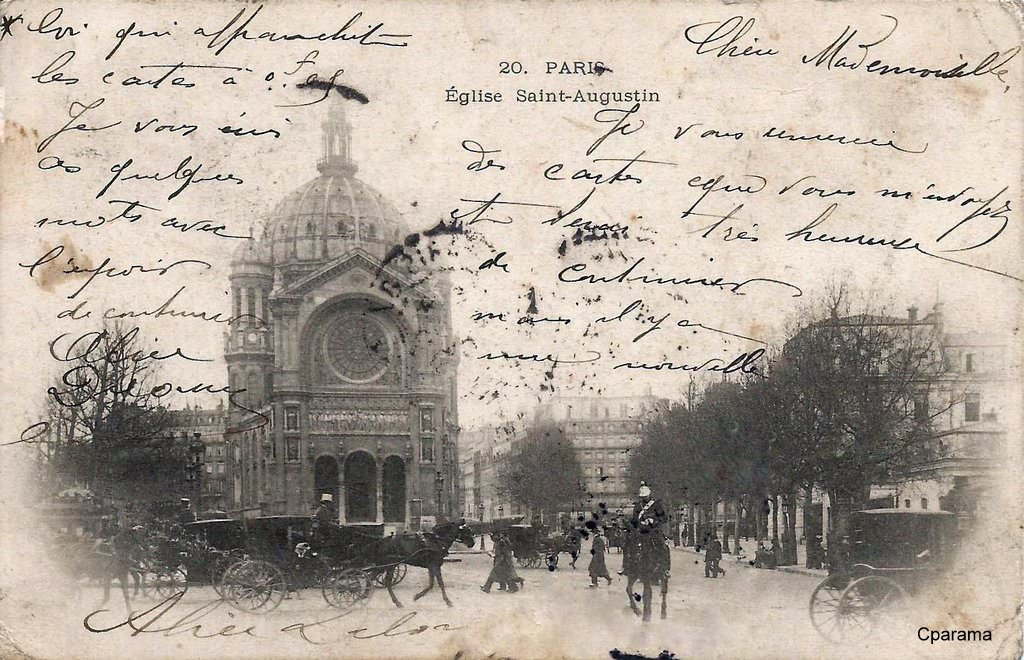 20. PARIS
Église Saint-Augustin
Chère Mademoiselle,
Je vous remercie
des cartes que vous m'envoyez
et serais très heureuse
de continuer
mais il y a
une nouvelle
loi qui affranchit
les cartes à 0f,05
Je vous écris
ces quelques
mots avec
l'espoir
de continuer
Alice
Alice
Cparama